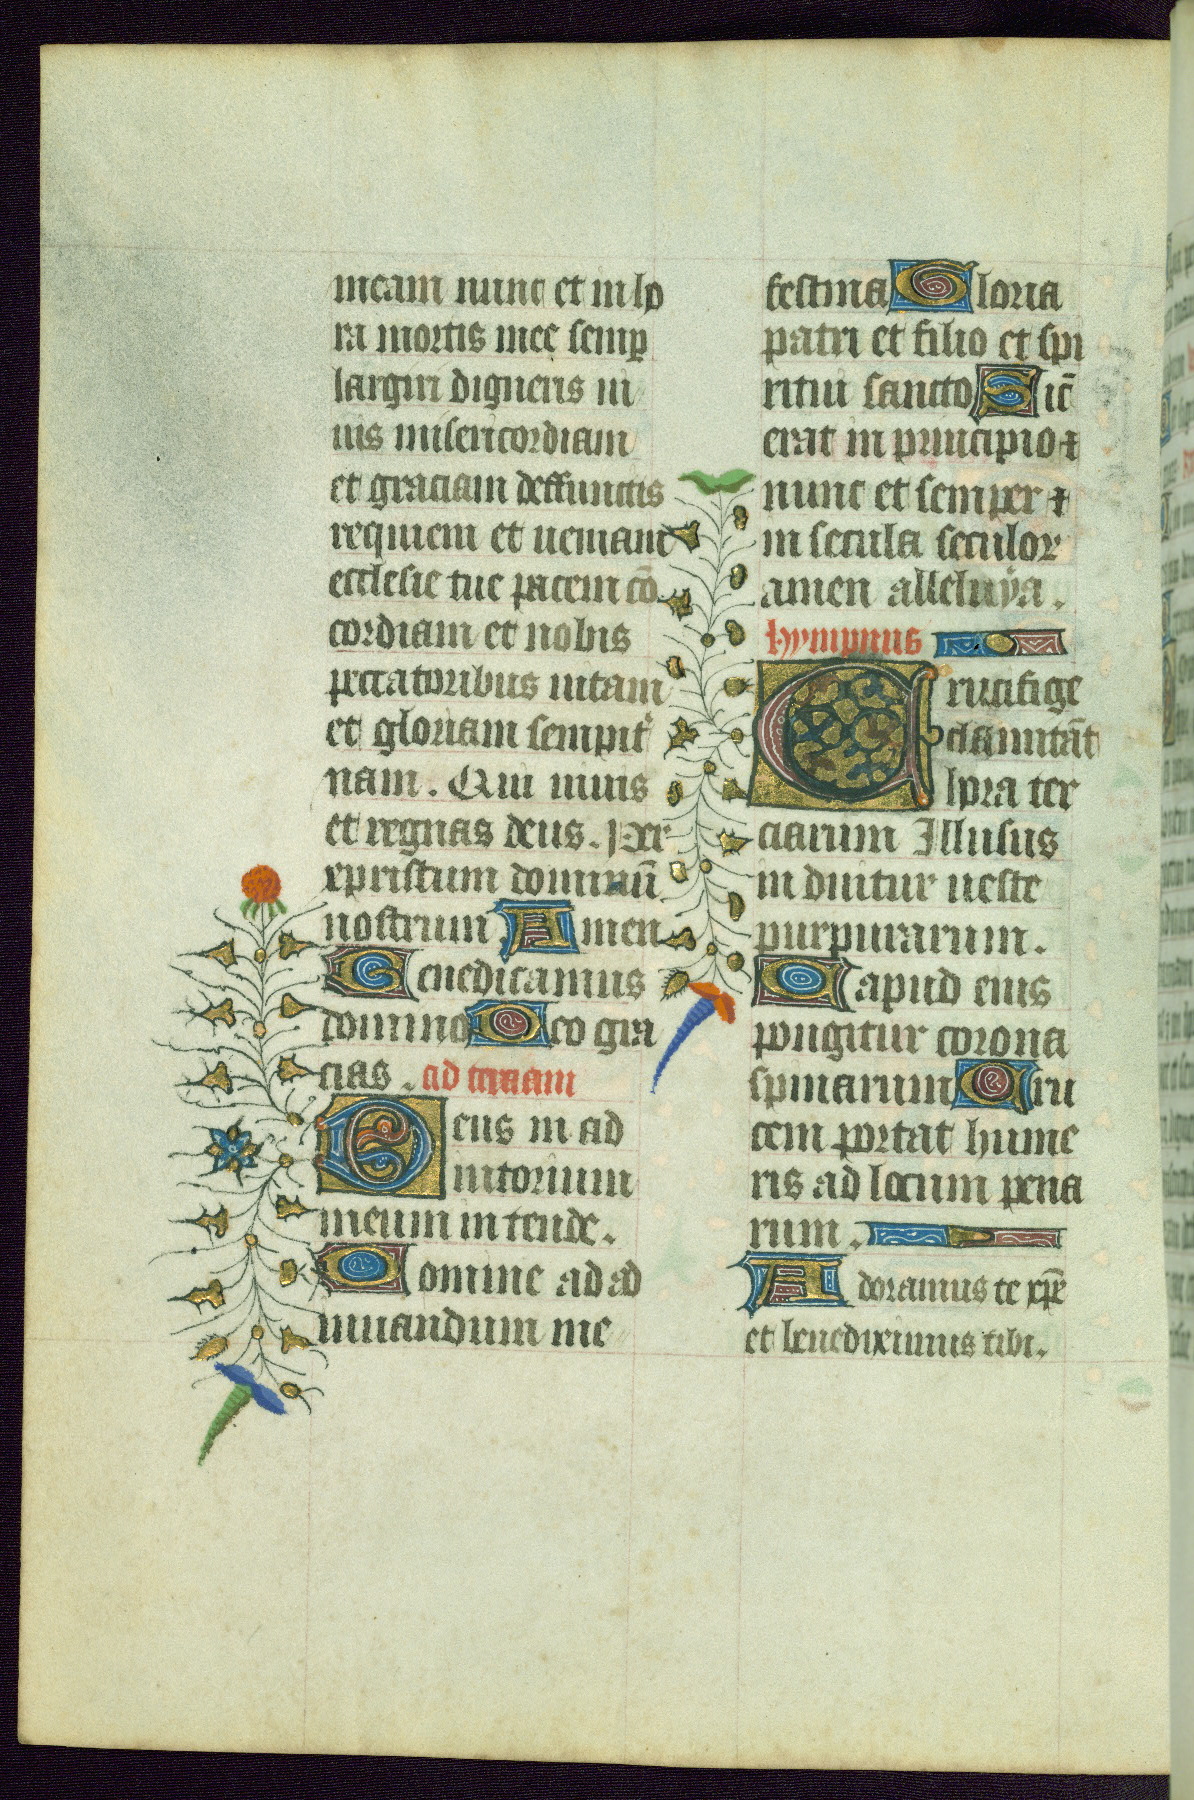 meam nunc et in ho
ra mortis mee semp
largiri digneris ui
uis misericordiam
et graciam deffunctis
requiem et ueniam
ecclesie tue pacem cō
cordiam et nobis
peccatoribus uitam
et gloriam sempit
nam. Qui uiuis
et regnas deus. Per
xpristum dominū
nostrum Amen
Benedicamus
domino Deo gra
cias. ad terciam
Deus in ad
iutorium
meum in tende.
Domine ad ad
iuuandum me
festina Gloria
patri et filio et spi
ritui sancto Sic̄
erat in principio ⁊
nunc et semper ⁊
in secula seculor
amen alleluÿa.
hympnus
Crucifige
clamitāt
hora ter
ciarum Illusus
in duitur ueste
purpurarum.
Capud eius
pongitur corona
spinarum Cru
cem portat hume
ris ad locum pena
rum.
Adoramus te xp̄e
et benediximus tibi.